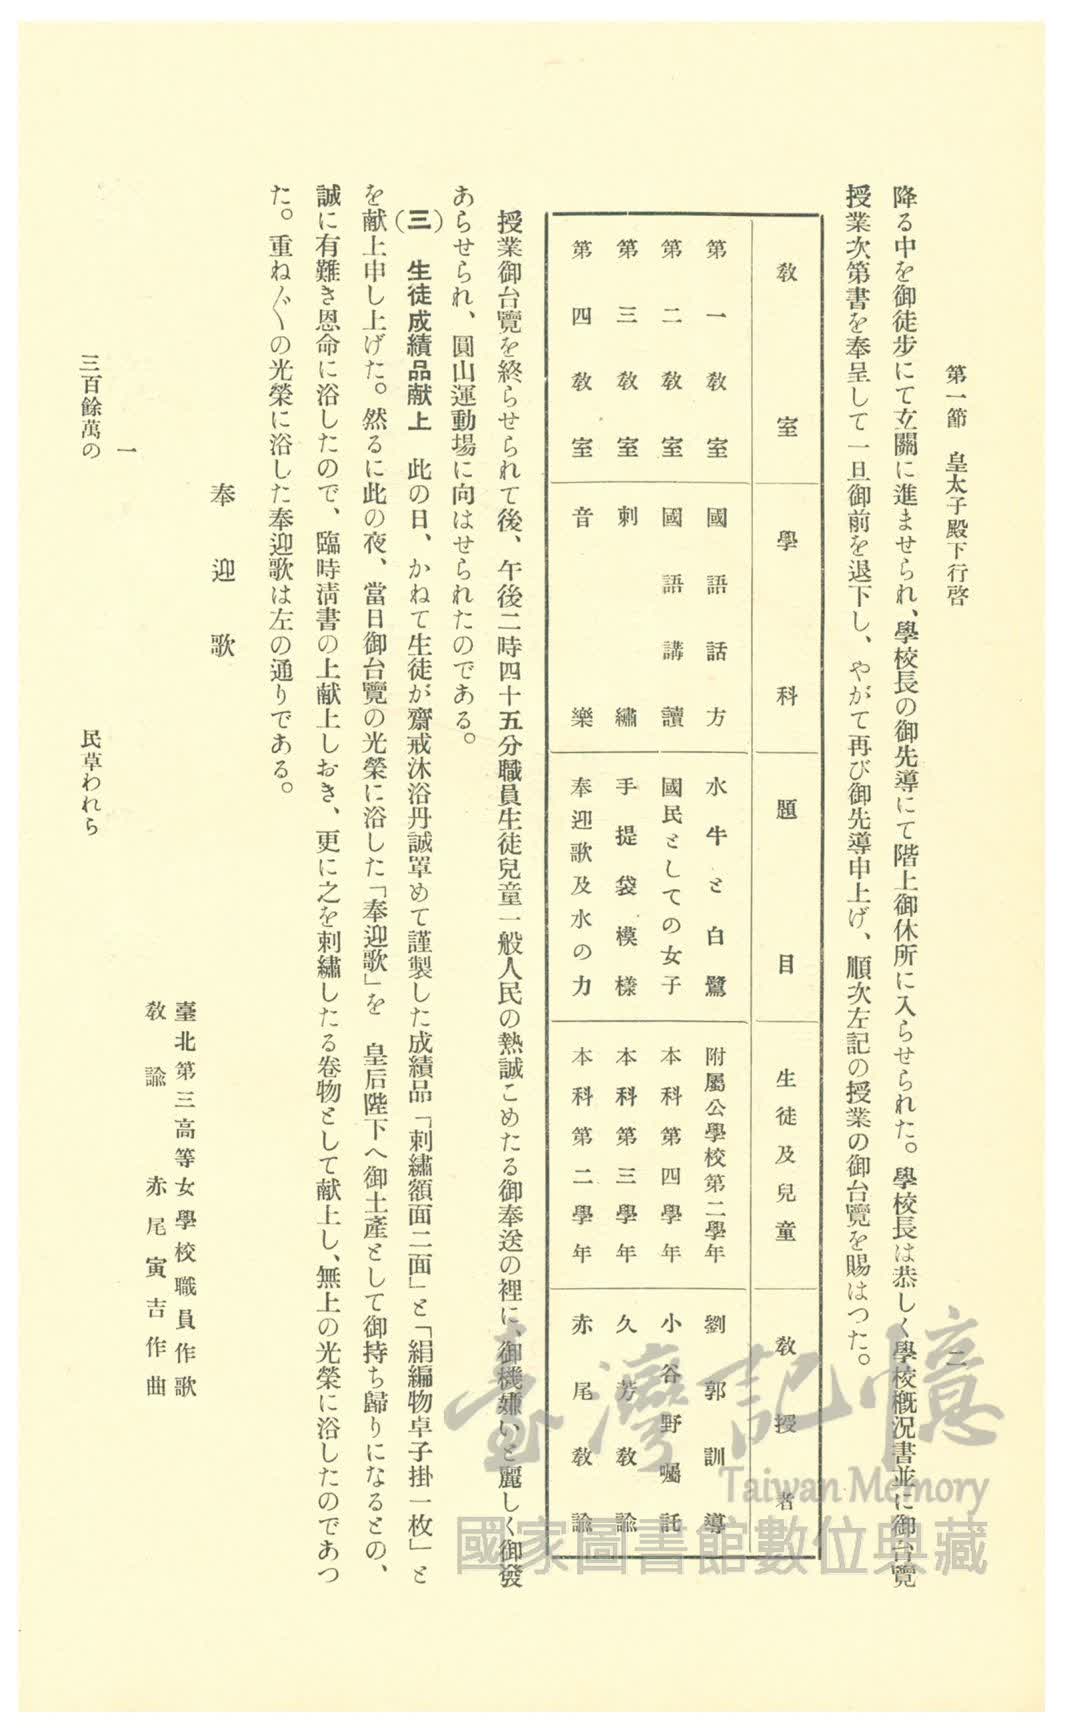 第一節　皇太子殿下行啓　二
降る中を御徒步にて玄關に進ませられ、學校長の御先導にて階上御休所に入らせられた。學校長は恭しく學校槪況書並に御台覽
授業次第書を奉呈して一旦御前を退下し、やがて再び御先導申上げ、順次左記の授業の御台覽を賜はつた。
敎室　學科　題目　生徒及兒童　敎授者
第一敎室　國語話方　水牛と白鷺　附屬公學校第二學年　劉郭訓導
第二敎室　國語講讀　國民としての女子　本科第四學年　小谷野囑託
第三敎室　刺繡　手提袋模樣　本科第三學年　久芳敎諭
第四敎室　音樂　奉迎歌及水の力　本科第二學年　赤尾敎諭
授業御台覽を終らせられて後、午後二時四十五分職員生徒兒童一般人民の熱誠こめたる御奉送の裡に、御機嫌いと麗しく御發
あらせられ、圓山運動場に向はせられたのである。
（三）生徒成績品献上　此の日、かねて生徒が齋戒沐浴丹誠罩めて謹製した成績品「刺繡額面二面」と「絹編物卓子掛一枚」と
を献上申し上げた。然るに此の夜、當日御台覽の光榮に浴した「奉迎歌」を　皇后陛下へ御土產として御持ち歸りになるとの、
誠に有難き恩命に浴したので、臨時淸書の上献上しおき、更に之を刺繡したる卷物として献上し、無上の光榮に浴したのであつ
た。重ね〴〵の光榮に浴した奉迎歌は左の通りである。
奉迎歌
臺北第三高等女學校職員作歌
敎諭　赤尾寅吉作曲
一
三百餘萬の　民草われら
臺灣記憶
Taiwan Memory
國家圖書館數位典藏